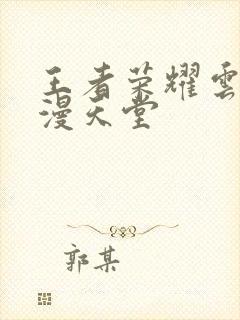 王者荣耀雲
漫天堂
郭某